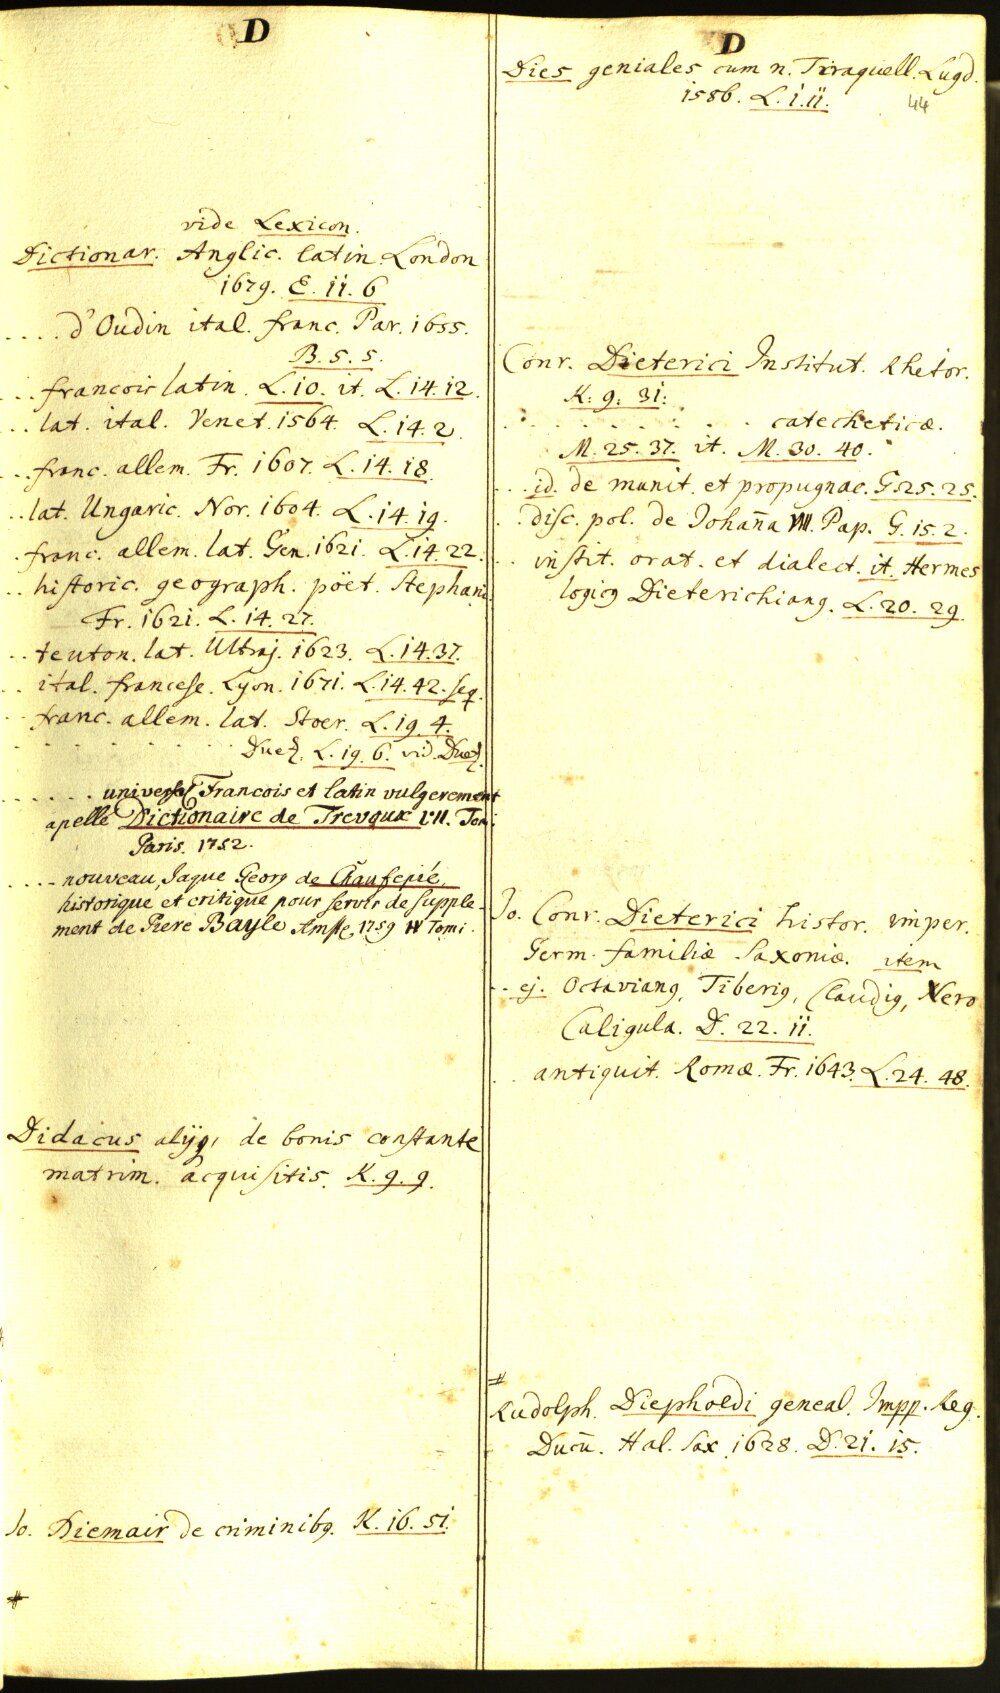 D
vide Lexicon.
Dictionar. Anglic. latin London
1679. E. 11. 6
.... d'Oudin ital. franc. Par. 1655.
B. 5. 5.
.. francois latin. L. 10. it. L. 14. 12.
.. lat. ital. Venet. 1564. L. 14. 2.
.. franc. allem. Fr. 1607. L. 14. 18.
.. lat. Ungaric. Nor. 1604. L. 14. 19.
. franc. allem. lat. Gen. 1621. L. 14. 22.
.. historic. geograph. pöet. Stephani
Fr. 1621. L. 14. 27.
.. teuton. lat. Ultraj. 1623. L. 14. 37.
.. ital. francese. Lyon. 1671. L. 14. 42. seq.
.. franc. allem. lat. Stoer. L. 19. 4.
. . . . . . Duez. L. 19. 6. vid. Duez.
...... universel Francois et latin vulgerement
apellé Dictionaire de Trevoux Tomi
Paris. 1752.
.... nouveau, Jaque Georg de Chaufepié,
historique et critique pour servir de supple-
ment de Piere Bayle Amste 1759 IV Tomi.
Didacus alijq, de bonis constante
matrim. acquisitis. K. 9. 9.
Jo. Diemair de criminibq. K. 16. 51.
#
D
Dies geniales cum n. Tiraquell. Lugd.
1586. L. 1. 11.
44
Conr. Dieterici Institut. Rhetor.
K. 9. 31.
. . . . . . . . catecheticæ.
M. 25. 37. it. M. 30. 40.
... id. de munit. et propugnac. G. 25. 25.
. disc. pol. de Johan̄a VIII. Pap. G. 15. 2.
.. instit. orat. et dialect. it. Hermes
logicq Dieterichianq. L. 20. 29.
Jo. Conr. Dieterici histor. imper.
Germ. familiæ Saxoniæ. item
.. ej. Octavianq, Tiberiq, Claudiq, Nero
Caligula. D. 22. 11.
.. antiquit. Romæ. Fr. 1643. L. 24. 48.
#
Rudolph. Diepholdi geneal. Impp. Reg.
Ducū. Hal. Sax. 1628. D. 21. 15.